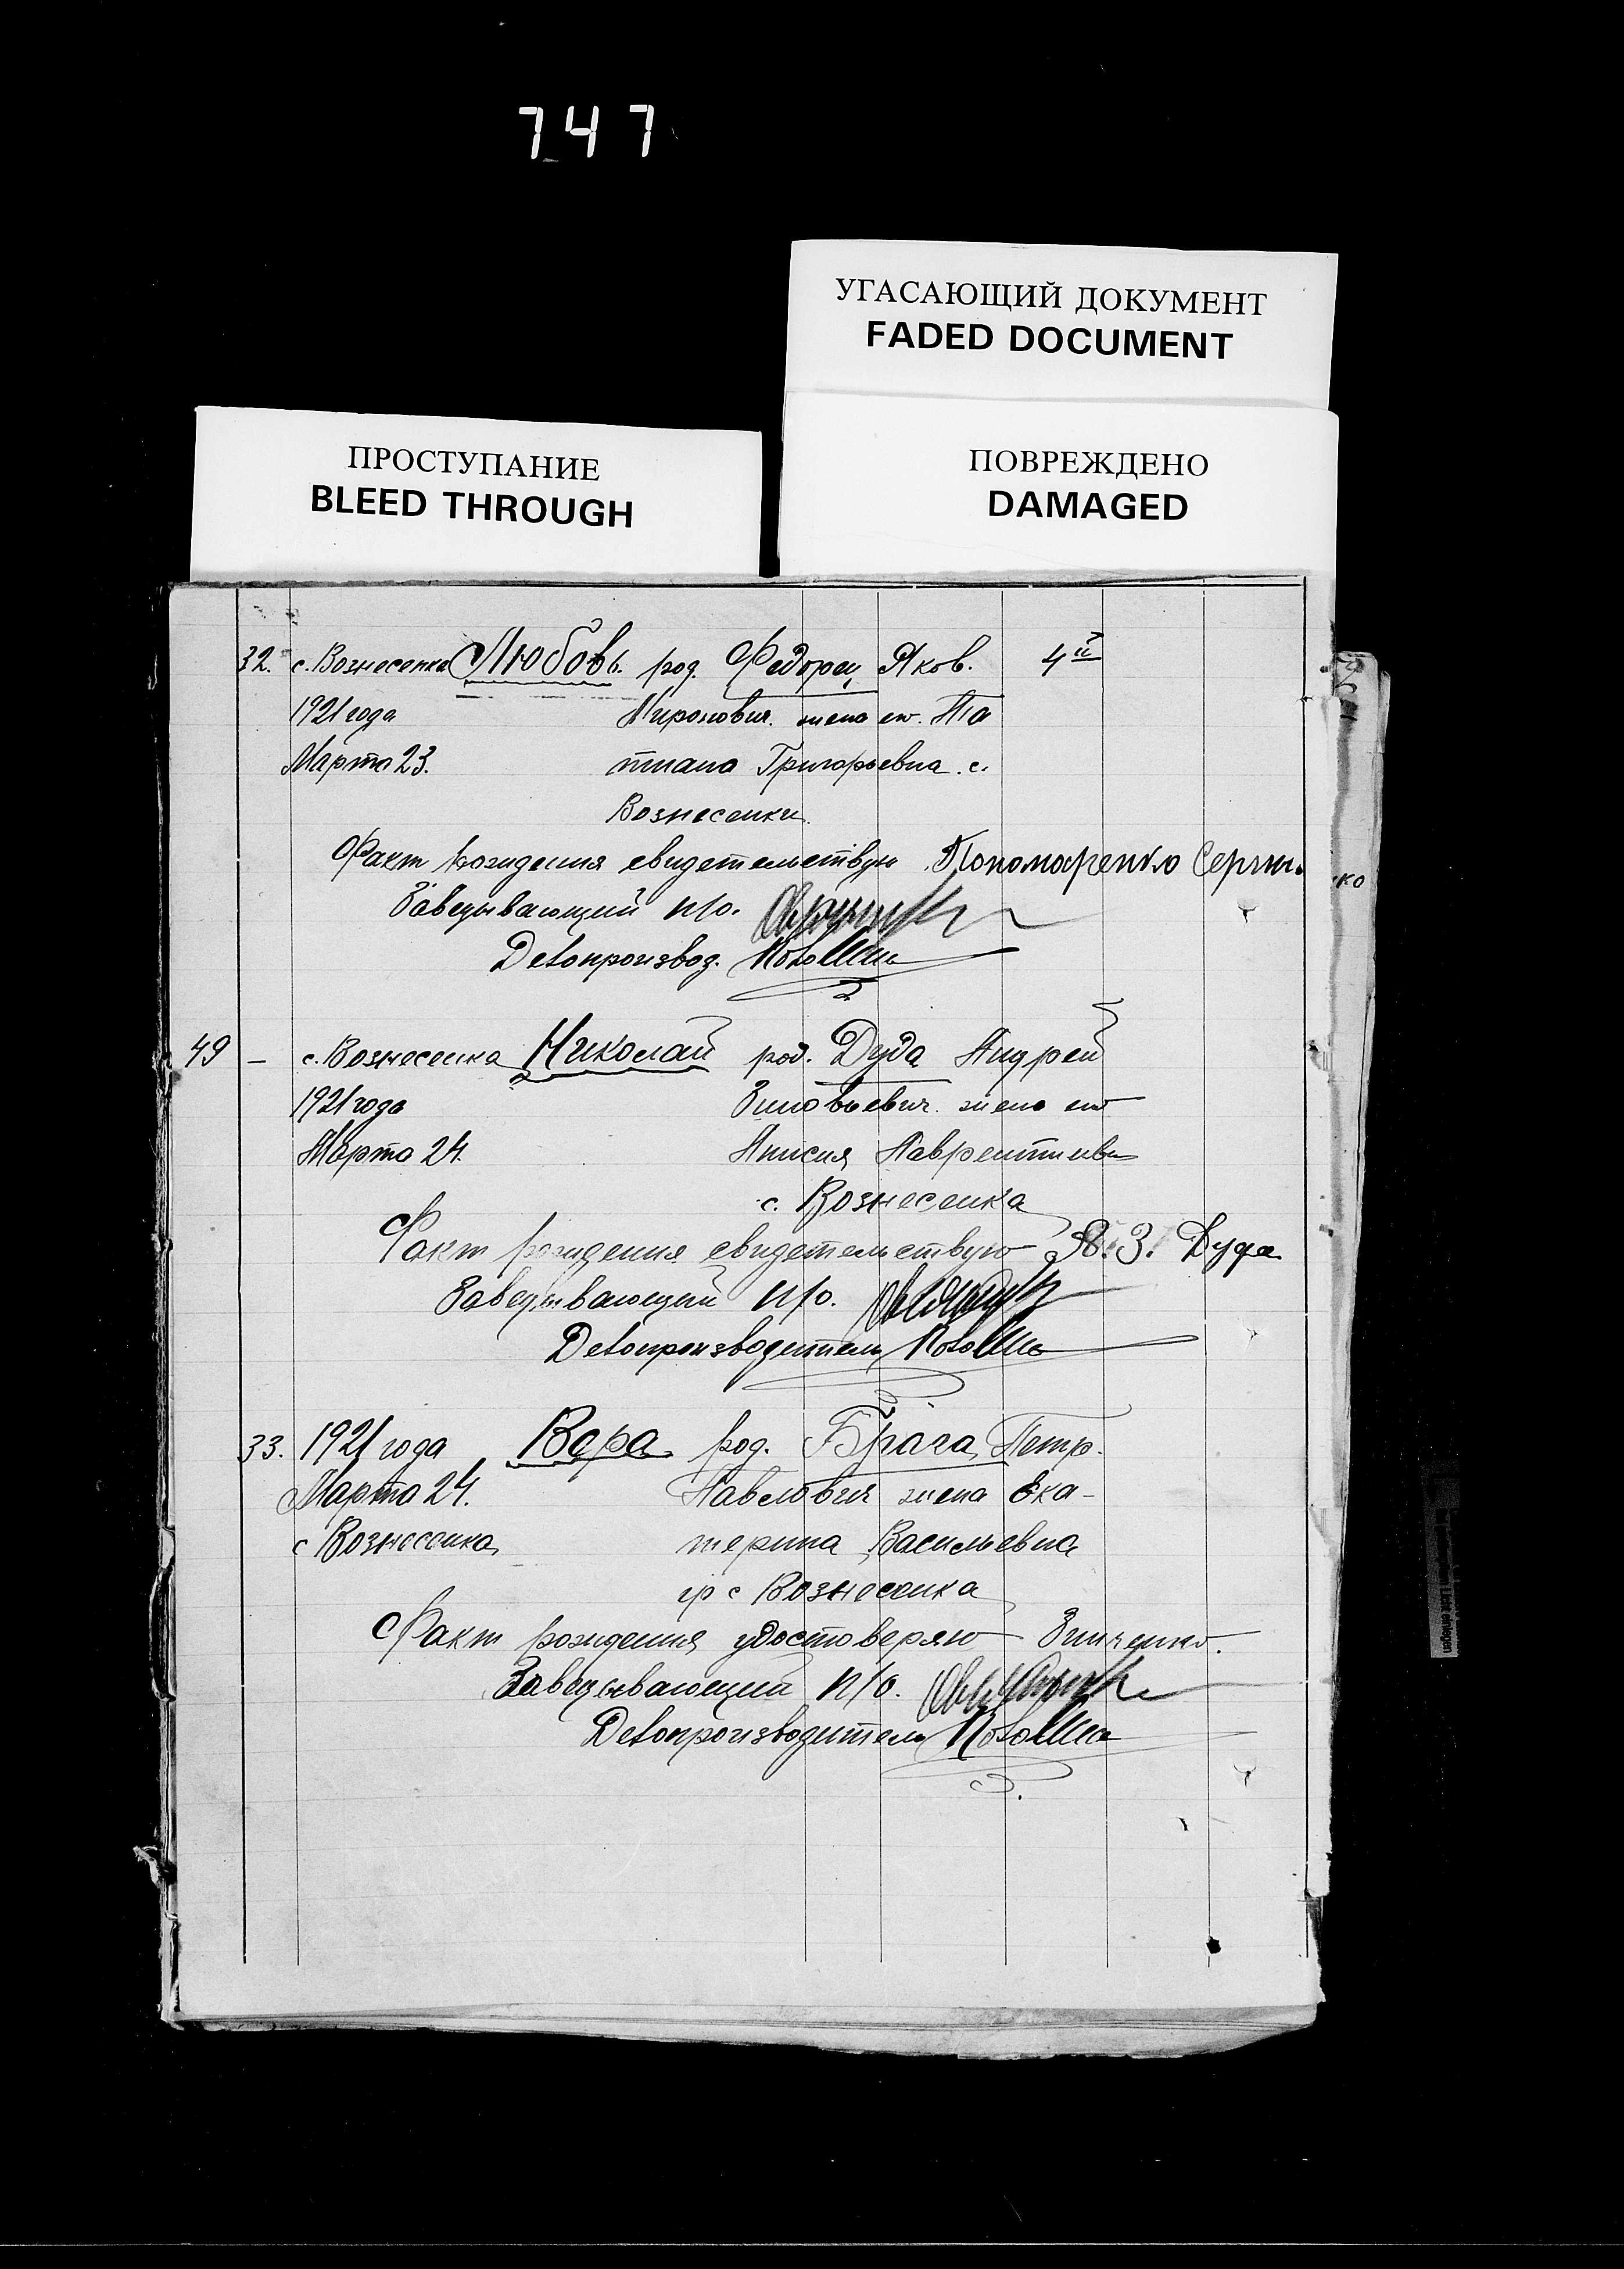 747
УГАСАЮЩИЙ ДОКУМЕНТ
FADED DOCUMENT
ПРОСТУПАНИЕ
BLEED THROUGH
ПОВРЕЖДЕНО
DAMAGED
32. с. Вознесенка Любовь. род. Федорец Яков. 4й
1921 года Миронович. жена ег. Та
Марта 23. тиана Григорьевна. с.
Вознесенки.
Факт рождения свидетельствую Пономаренко Серги
ко
Заведывающий п/о.
Делопроизвод.
49 – с. Вознесенка Николай род. Дуда Андрей
1921 года Зиновьевич. жена его
Марта 24. Анисия Лаврентиевн
с. Вознесенка
Факт рождения свидетельствую Я. З. Дуда
Заведывающий п/о.
Делопроизводитель
33. 1921 года Вера род. Брага Петр.
Марта 24. Павлович жена Ека-
с Вознесенка терина Васильевна
гр с Вознесенка
Факт рождения удостоверяю Зинченко.
Заведывающий п/о.
Делопроизводитель